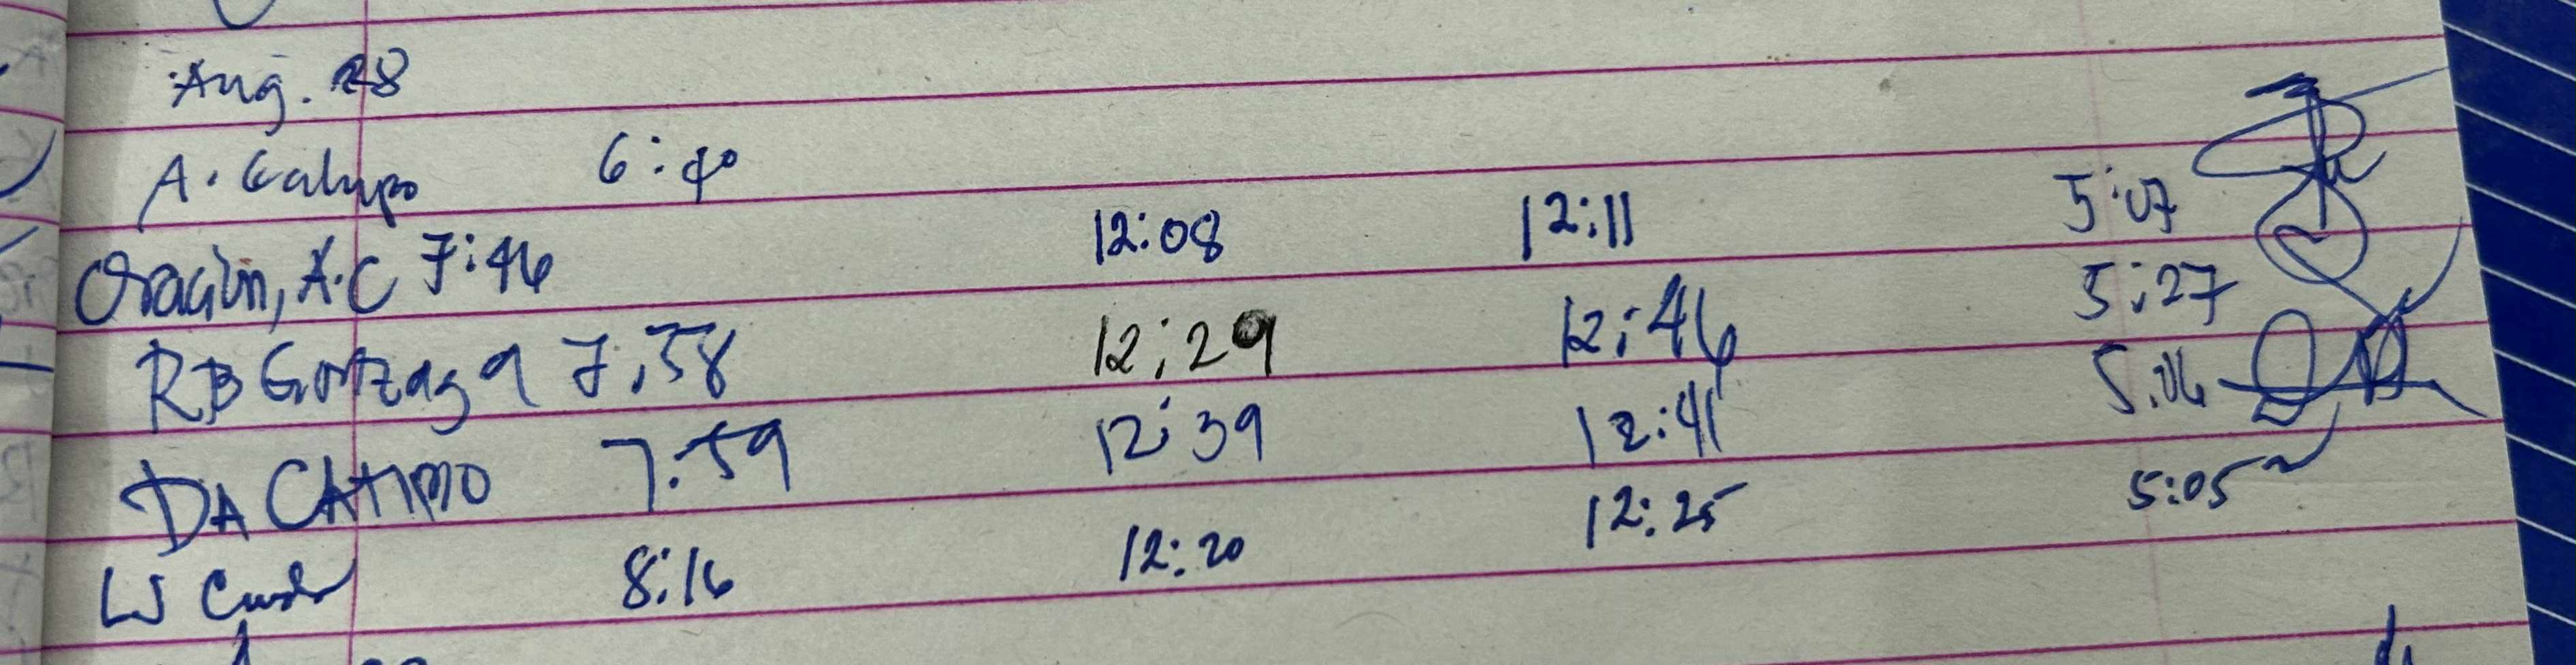 Aug. 28
A. Galupo 6:40
Oracion, A.C 7:46 12:08 12:11 5:07
RB Gonzaga 7:58 12:29 12:46 5:27
DA CATIMO 7:59 12:39 12:41 5:06
LJ 8:16 12:20 12:25 5:05